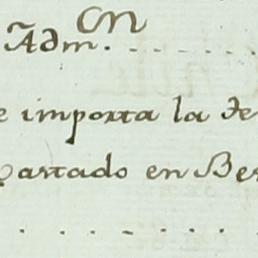 CN
Adm.
e importa la de
partado en Be